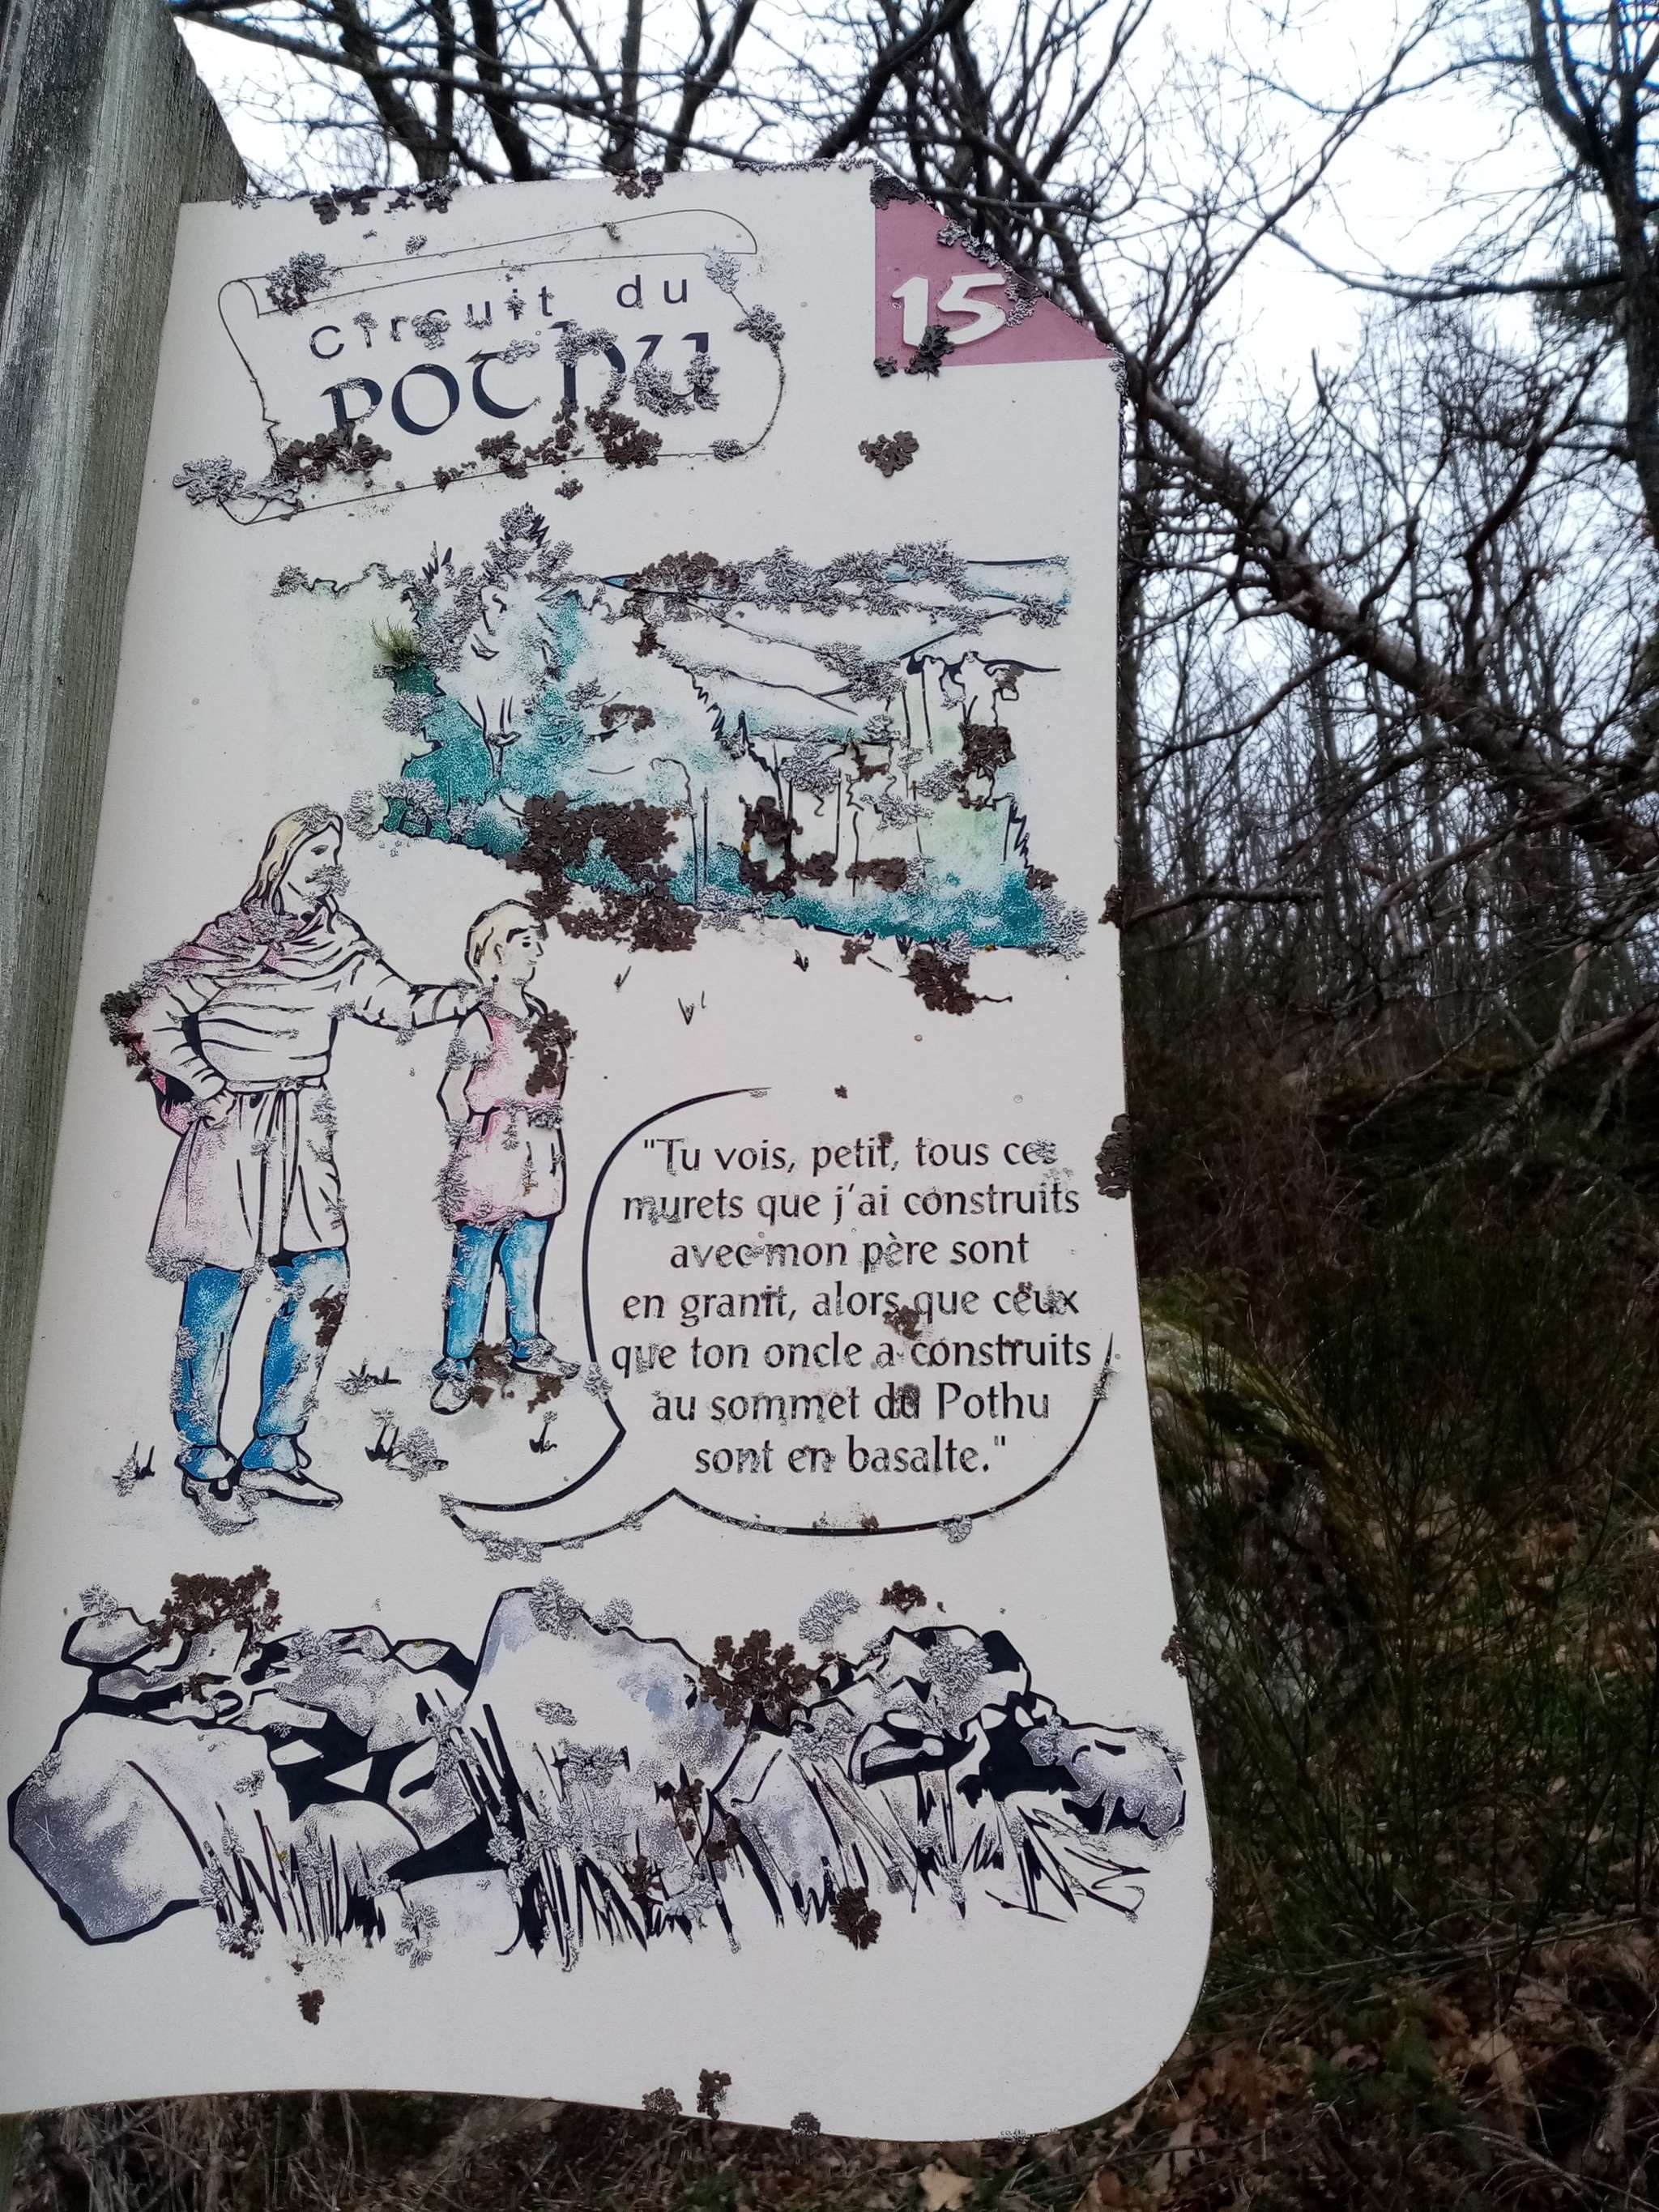 Circuit du
pothu
15
"Tu vois, petit, tous ces
murets que j'ai construits
avec mon père sont
en granit, alors que ceux
que ton oncle a construits
au sommet du Pothu
sont en basalte."